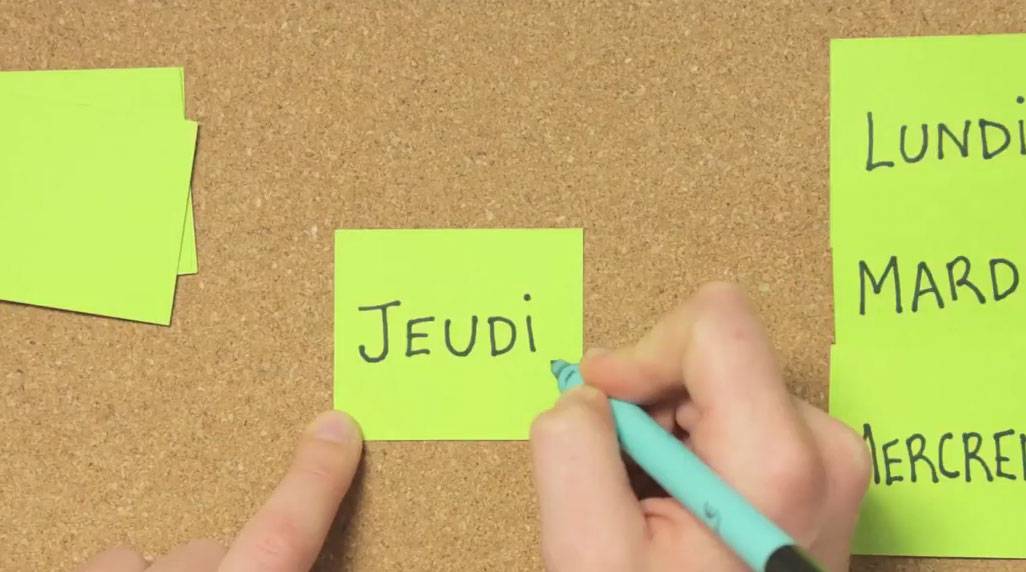 JEUDi
LUNDi
MARD
MERCREI